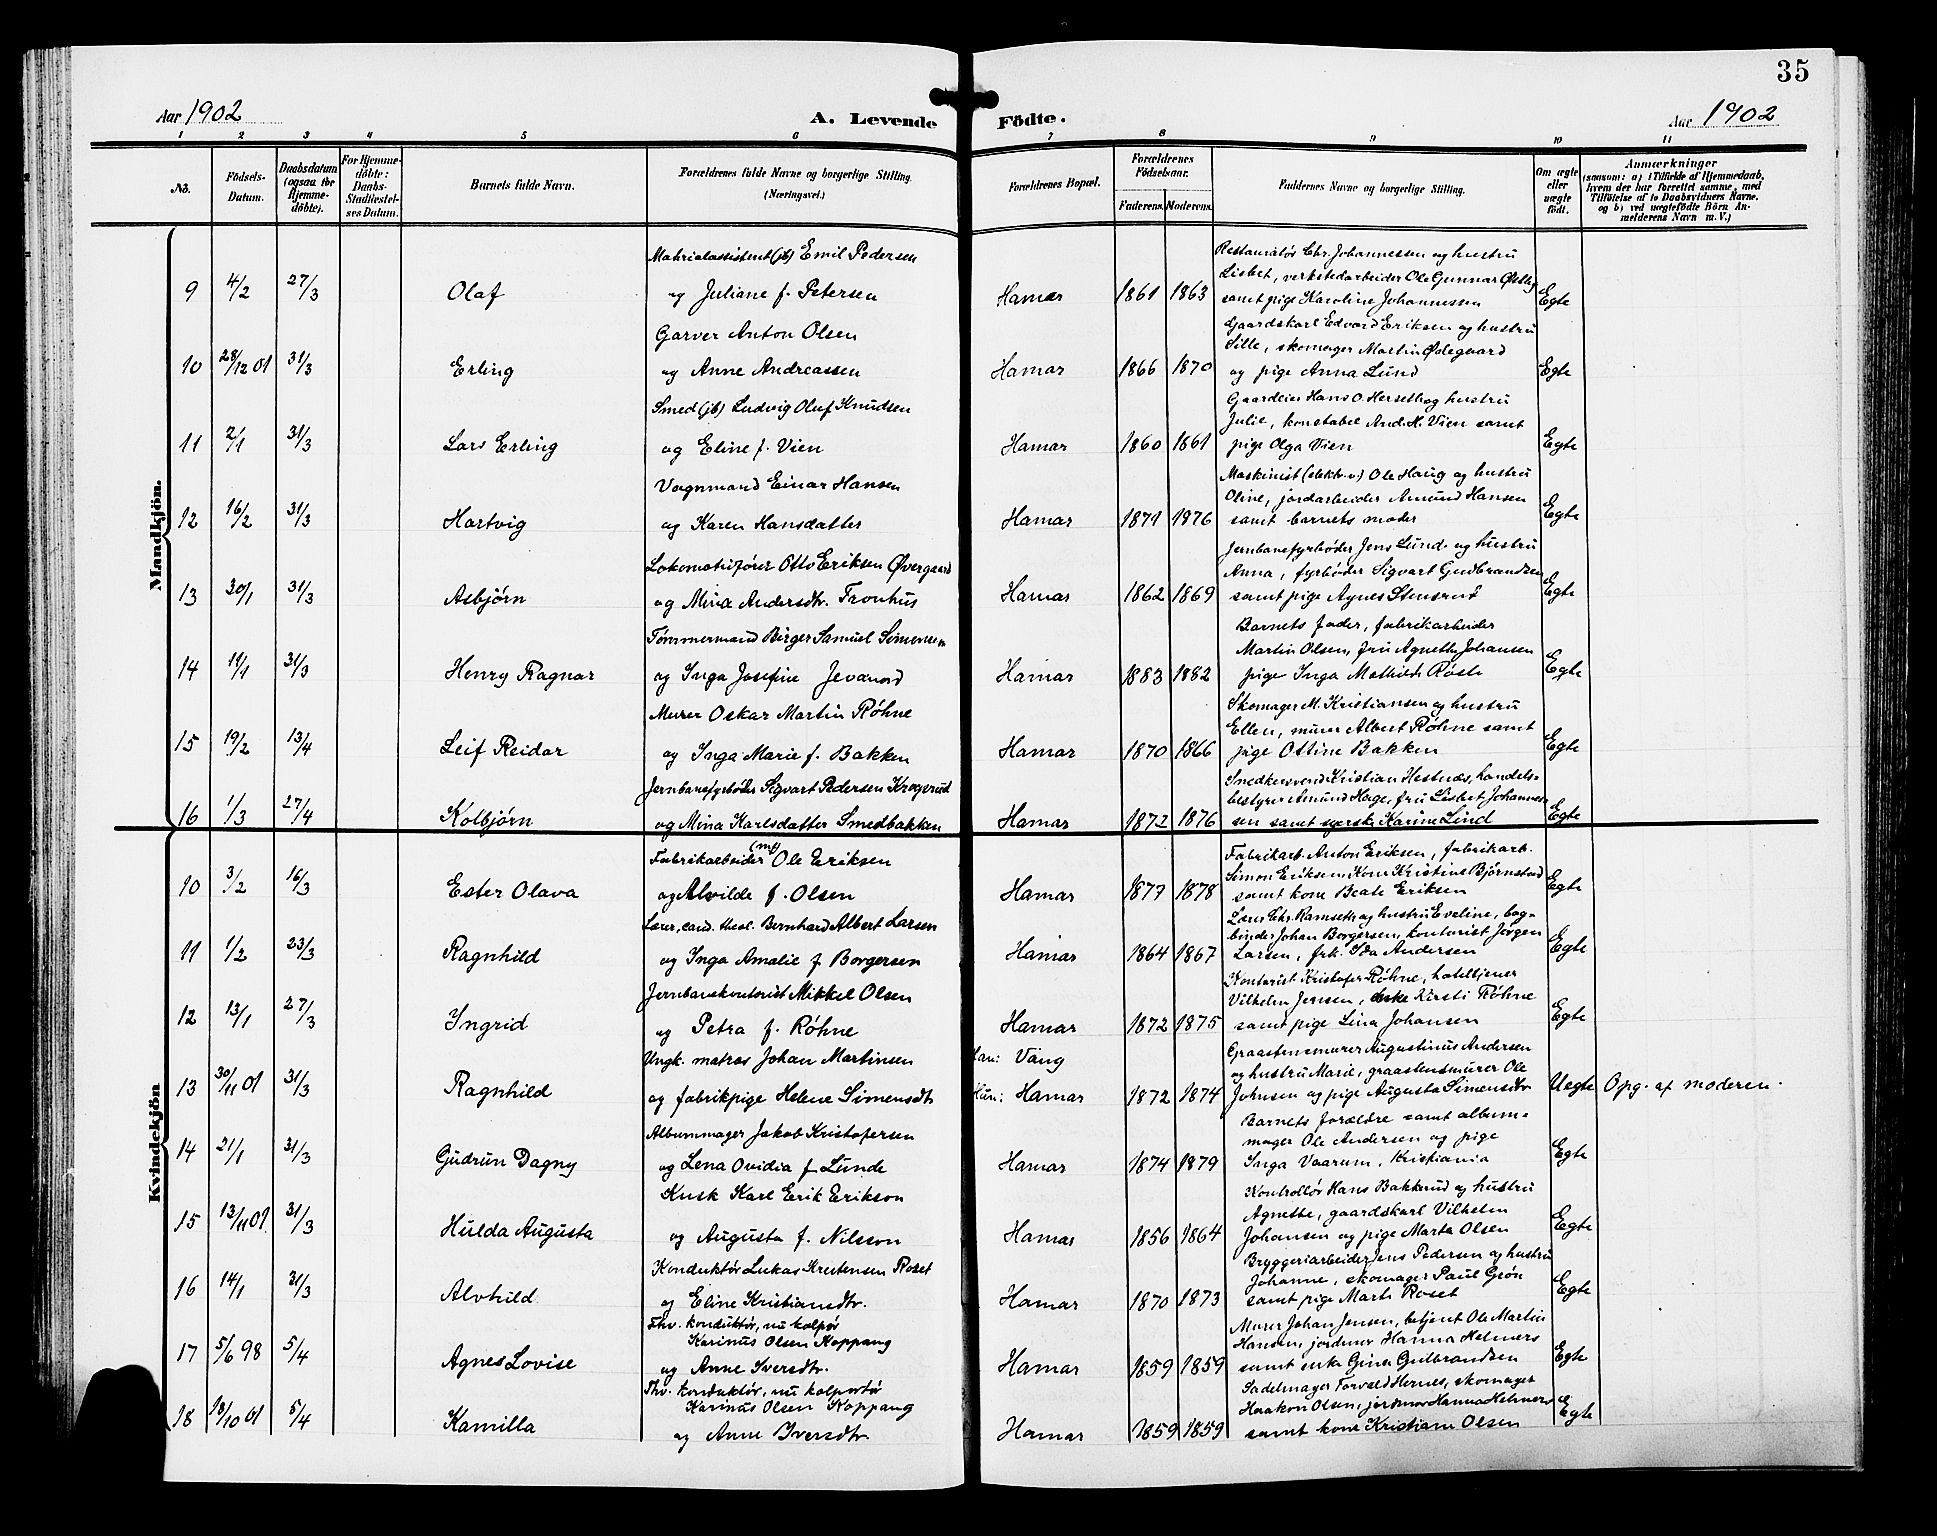 35
Aar 1902
A. Levende Födte.
Aar 1902
1 2 3 4 5 6 7 8 9 10 11
No.
Födsels-
Datum.
Daabsdatum
(ogsaa for
Hjemme-
döbte).
For Hjemme-
döbte:
Daabs-
Stadfæstel-
ses Datum.
Barnets fulde Navn.
Forældrenes fulde Navne og borgerlige Stilling.
(Næringsvei.)
Forældrenes Bopæl.
Forældrenes
Födselsaar.
Faderens. Moderens.
Faddernes Navne og borgerlige Stilling.
Om ægte
eller
uægte
födt.
Anmærkninger
(saasom: a) i Tilfælde af Hjemmedaab,
hvem der har forrettet samme, med
Tilföielse af to Daabsvidners Navne,
og b) ved uægtefödte Börn An-
melderens Navn m. V.)
Mandkjön.
Materialassistent (jb) Emil Pedersen
9 4/2 27/3 Olaf og Juliane f. Petersen Hamar 1861 1863
Restauratör Chr. Johannessen og hustru
Lisbet, verkstedarbeider Ole Gunnar Østby
samt pige Karoline Johannessen Egte
Garver Anton Olsen
10 28/12 01 31/3 Erling og Anne Andreassen Hamar 1866 1870
Gaardskarl Edvard Eriksen og hustru
Sille, skomager Martin Ødegaard
og pige Anna Lund Egte
Smed (jb) Ludvig Oluf Knudsen
11 2/1 31/3 Lars Erling og Eline f. Vien Hamar 1860 1861
Gaardeier Hans O.Herseth og hustru
Julie, konstabel And. H. Vien samt
pige Olga Vien Egte
Vognmand Einar Hansen
12 16/2 31/3 Hartvig og Karen Hansdatter Hamar 1871 1876
Maskinist (elektr.v.) Ole Haug og hustru
Oline, jordarbeider Amund Hansen
samt barnets moder Egte
Lokomotivfører Otto Eriksen Øvergaard
13 30/1 31/3 Asbjörn og Mina Andersdtr. Fronhus Hamar 1862 1869
Jernbanefyrbøder Jens Lund og hustru
Anna, fyrbøder Sigvart Gudbrandsen
samt pige Agnes Stensrud Egte
Tømmermand Birger Samuel Simensen
14 11/1 31/3 Henry Ragnar og Inga Josefine Jevanord Hamar 1883 1882
Barnets fader, fabrikarbeider
Martin Olsen, fru Agnethe Johansen
pige Inga Mathilde Røste Egte
Murer Oskar Martin Røhne
15 19/2 13/4 Leif Reidar og Inga Marie f. Bakken Hamar 1870 1866
Skomager M. Kristiansen og hustru
Ellen, murer Albert Røhne samt
pige Ottine Bakken Egte
Jernbanefyrbøder Sigvart Pedersen Krogerud
16 1/3 27/4 Kolbjörn og Mina Karlsdatter Smedbakken Hamar 1872 1876
Smedkersvend Kristian Hestnæs, handels-
bestyrer Amund Hage, fru Lisbet Johannes-
sen samt syerske Karine Lind Egte
Kvindekjön
Fabrikarbeider (mf) Ole Eriksen
10 3/2 16/3 Ester Olava og Alvilde f. Olsen Hamar 1877 1878
Fabrikarb. Anton Eriksen, fabrikarb.
Simon Eriksen, kone Kristine Björnstad
samt kone Beate Eriksen Egte
Lærer, cand. theol. Bernhard Albert Larsen
11 1/2 23/3 Ragnhild og Inga Amalie f. Borgersen Hamar 1864 1867
Lærer Chr. Ramseth og hustru Eveline, bog-
binder Johan Borgersen, kontorist Jörgen
Larsen, frk. Ida Andersen Egte
Jernbanekontorist Mikkel Olsen
12 13/1 27/3 Ingrid og Petra f. Røhne Hamar 1872 1875
Kontorist Kristofer Røhne, hoteltjener
Vilhelm Jensen, enke Kirsti Røhne
samt pige Lina Johansen Egte
Ungk. matros Johan Martinsen Han: Vang
13 30/11 01 31/3 Ragnhild og fabrikpige Helene Simensdtr Hun: Hamar 1872 1874
Graastensmurer Augustinus Andersen
og hustru Marie, graastensmurer Ole
Johnsen og pige Augusta Simensdtr Uegte Opg. af moderen.
Albummager Jakob Kristofersen
14 21/1 31/3 Gudrun Dagny og Lena Ovidia f. Lunde Hamar 1874 1879
Barnets forældre samt album-
mager Ole Andersen og pige
Inga Vaarum, Kristiania Egte
Kusk Karl Erik Erikson
15 13/11 01. 31/3 Hulda Augusta og Augusta f. Nilsson Hamar 1856 1864
Kontrollör Hans Bakkerud og hustru
Agnethe, gaardskarl Vilhelm
Johansen og pige Marta Olsen Egte
Konduktör Lukas Kristensen Roset
16 14/1 31/3 Alvhild og Eline Kristiansdtr. Hamar 1870 1873
Bryggeriarbeider Jens Pedersen og hustru
Johanne, skomager Paul Grön
samt pige Marte Roset Egte
Fhv. konduktör, nu kolpör
Karinus Olsen Koppang
17 5/6 98 5/4 Agnes Lovise og Anne Iversdtr. Hamar 1859 1859
Murer Johan Jensen, betjent Ole Martin
Hansen, jordmor Hanna Helmers
samt enke Gina Gulbrandsen Egte
Fhv. konduktör, nu kolportör
Karinus Olsen Koppang
18 18/10 01 5/4 Kamilla og Anne Iversdtr Hamar 1859 1859
Sadelmager Torvald Hernes, skomager
Haakon Olsen, jordmor Hanna Helmers
samt kone Kristiane Olsen Egte